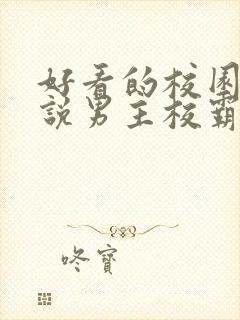 好看的校园
說男主校霸
咚寶